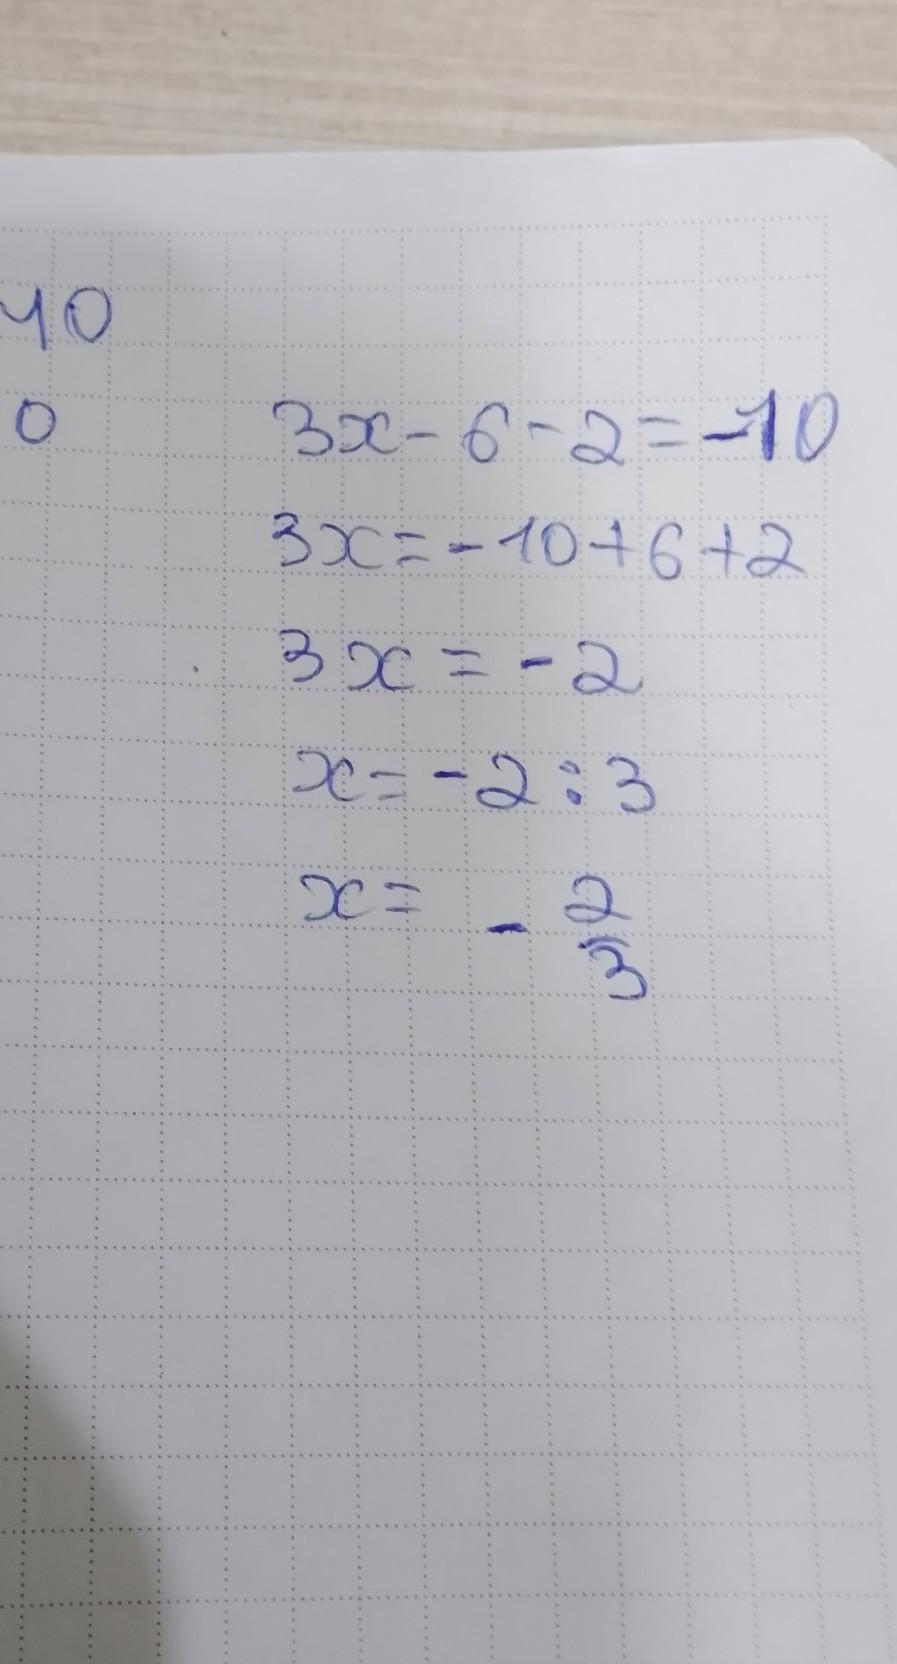 40
0
3x - 6 - 2 = -10
3x = - 10 + 6 + 2
3x = - 2
x = - 2 : 3
x = - 2/3